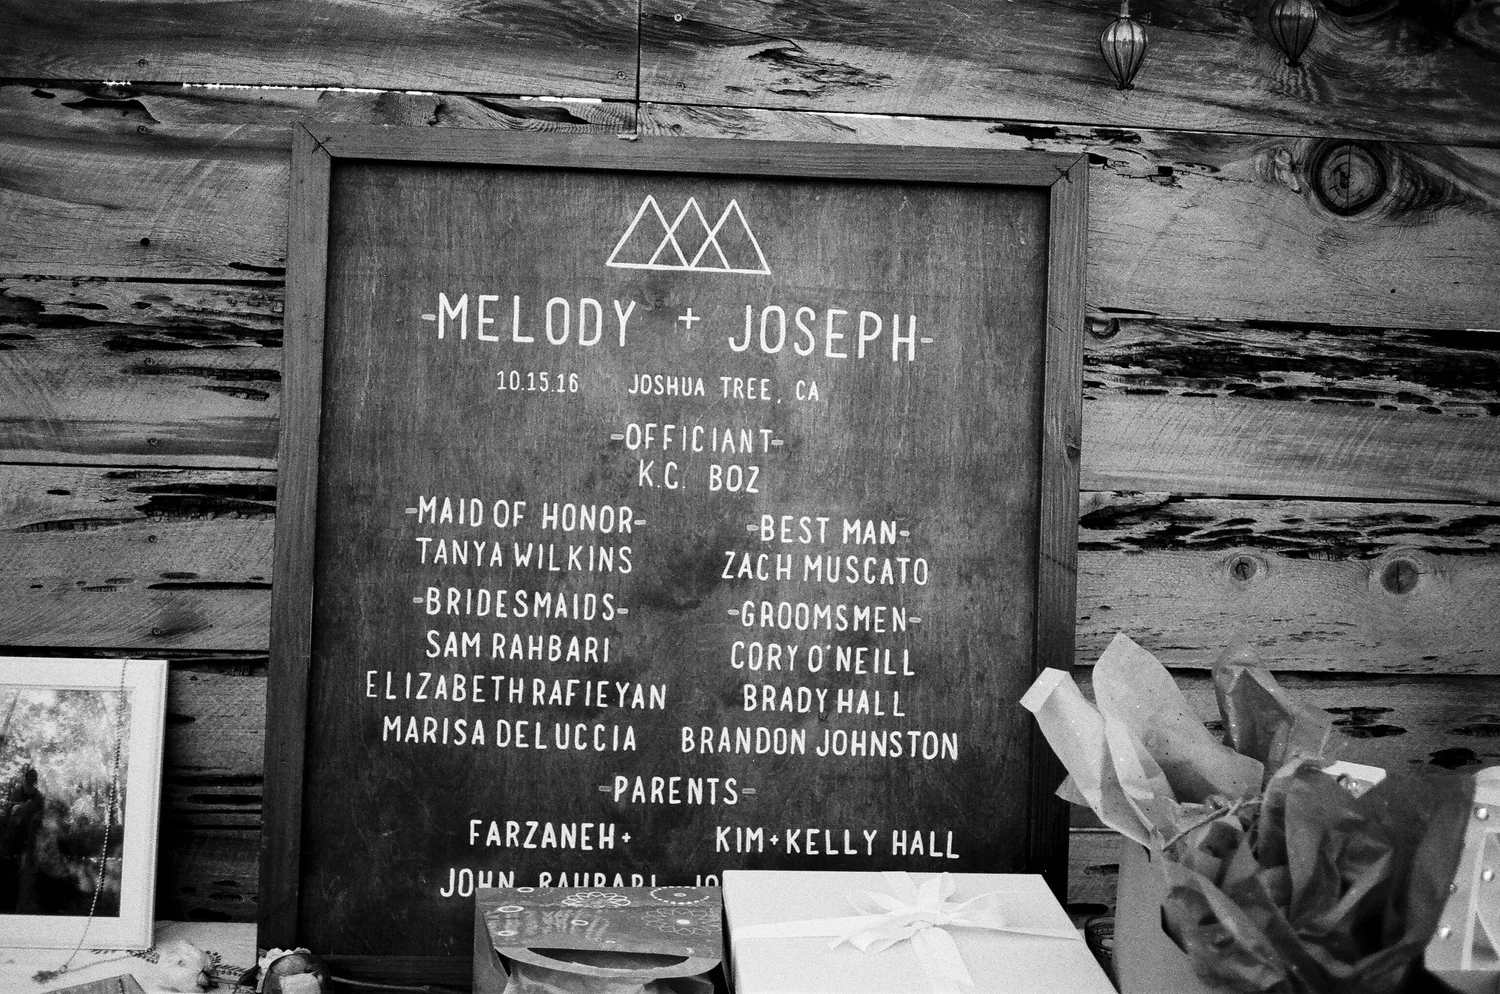 -MELODY + JOSEPH-
10.15.16 JOSHUA TREE, CA
-OFFICIANT-
K.C. BOZ
-MAID OF HONOR-
TANYA WILKINS
-BRIDESMAIDS-
SAM RAHBARI
ELIZABETH RAFIEYAN
MARISA DELUCCIA
-BEST MAN-
ZACH MUSCATO
-GROOMSMEN-
CORY O'NEILL
BRADY HALL
BRANDON JOHNSTON
-PARENTS-
FARZANEH +
JOHN RAHBARI
KIM + KELLY HALL